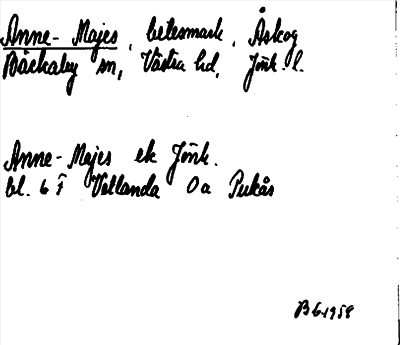 Anne-Majes, betesmark, Åskog
Bäckaby sn, Västra hd, Jönk. l.
Anne-Majes ek Jönk.
bl. 6 F Vetlanda Oa Pukås
B G 1958